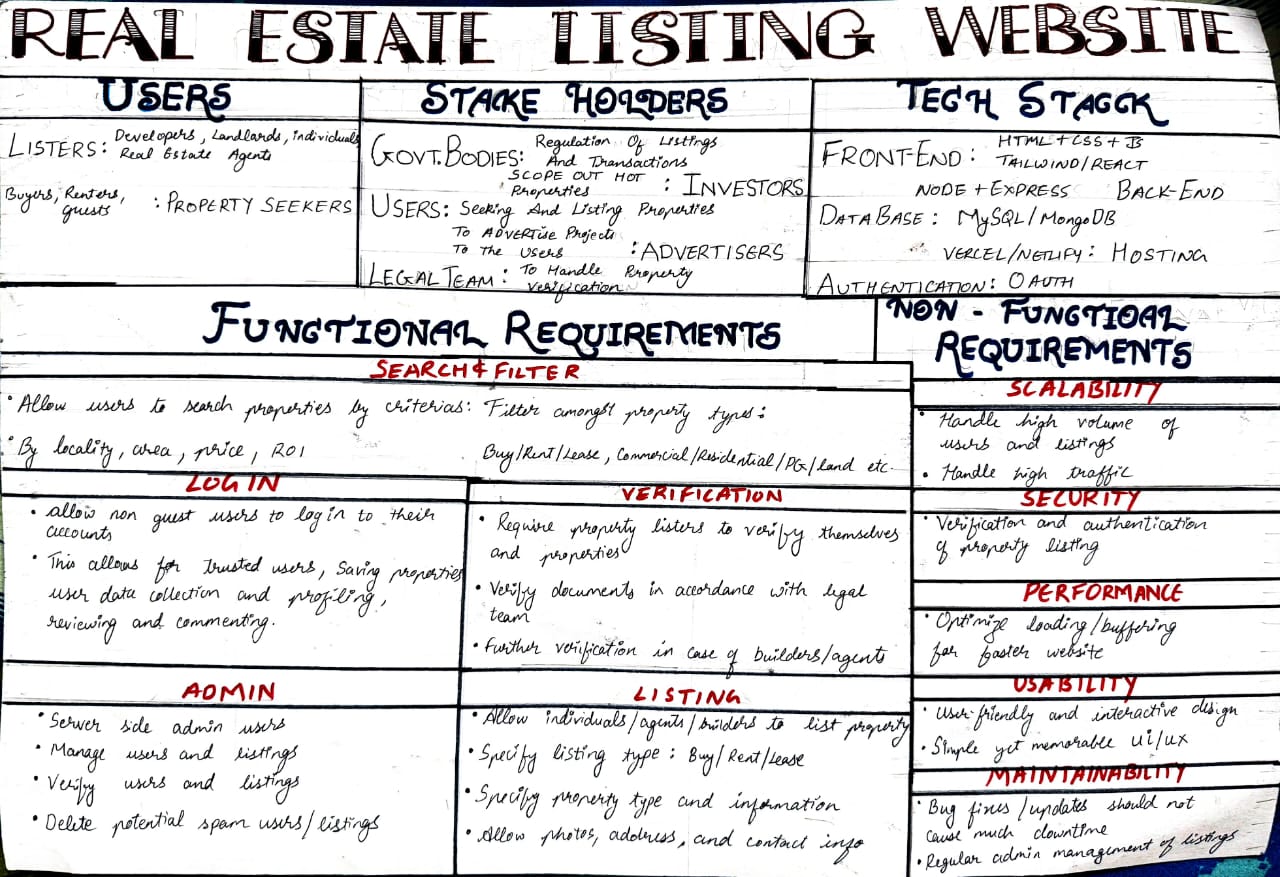 REAL ESTATE LISTING WEBSITE
USERS
LISTERS: Developers, Landlards, individuals
Real Estate Agents
Buyers, Renters,
guests : PROPERTY SEEKERS
STAKE HOLDERS
GOVT. BODIES: Regulation Of Listings
And Transactions
SCOPE OUT HOT
Properties : INVESTORS
USERS: Seeking And Listing Properties
To ADVERTise Projects
To The Users : ADVERTISERS
LEGAL TEAM: To Handle Property
Verification
TECH STACCK
FRONT-END: HTML + CSS + JS
TAILWIND/REACT
NODE + EXPRESS BACK-END
DATABASE: MySQL/MongoDB
VERCEL/NETLIFY: HOSTING
AUTHENTICATION: OAUTH
FUNCTIONAL REQUIREMENTS
SEARCH & FILTER
• Allow users to search properties by criterias: Filter amongst property types:
• By locality, area, price, ROI Buy/Rent/Lease, Commercial/Residential/PG/land etc.
LOGIN
• allow non guest users to log in to their
accounts
• This allows for trusted users, Saving properties
user data collection and profiling,
reviewing and commenting.
VERIFICATION
• Require property listers to verify themselves
and properties
• Verify documents in accordance with legal
team
• Further verification in case of builders/agents
ADMIN
• Server side admin users
• Manage users and listings
• Verify users and listings
• Delete potential spam users/listings
LISTING
• Allow individuals/agents/builders to list property
• Specify listing type: Buy/Rent/Lease
• Specify property type and information
• Allow photos, address, and contact info
NON - FUNCTIOAL
REQUIREMENTS
SCALABILITY
• Handle high volume of
users and listings
• Handle high traffic
SECURITY
• Verification and authentication
of property listing
PERFORMANCE
• Optimize loading/buffering
for faster website
USABILITY
• User-friendly and interactive design
• Simple yet memorable ui/ux
MAINTAINABILITY
• Bug fixes/updates should not
cause much downtime
• Regular admin management of listings